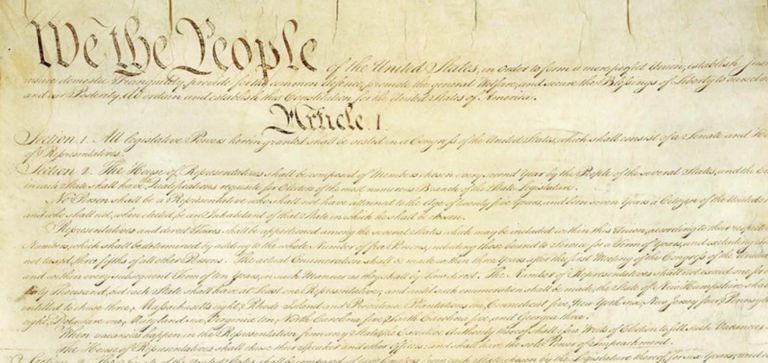 We the People of the United States, in Order to form a more perfect Union, establish Just
insure domestic Tranquility, provide for the common defence, promote the general Welfare, and secure the Blessings of Liberty to ourselves
and our Posterity, do ordain and establish this Constitution for the United States of America.
Article. I.
Section. 1. All legislative Powers herein granted shall be vested in a Congress of the United States, which shall consist of a Senate and Ho
of Representatives.
Section. 2. The House of Representatives shall be composed of Members chosen every second Year by the People of the several States, and the
in each State shall have Qualifications requisite for Electors of the most numerous Branch of the State Legislature.
No Person shall be a Representative who shall not have attained to the Age of twenty five Years, and been seven Years a Citizen of the United
and who shall not, when elected, be an Inhabitant of that State in which he shall be chosen.
Representatives and direct Taxes shall be apportioned among the several States which may be included within this Union, according to their respect
Numbers, which shall be determined by adding to the whole Number of free Persons, including those bound to Service for a Term of Years, and excluding
not taxed, three fifths of all other Persons. The actual Enumeration shall be made within three Years after the first Meeting of the Congress of the United
and within every subsequent Term of ten Years, in such Manner as they shall by Law direct. The Number of Representatives shall not exceed one for
thirty Thousand, but each State shall have at Least one Representative; and until such enumeration shall be made, the State of New Hampshire shall
entitled to chuse three, Massachusetts eight, Rhode Island and Providence Plantations one, Connecticut five, New York six, New Jersey four, Pennsylv
eight, Delaware one, Maryland six, Virginia ten, North Carolina five, South Carolina five, and Georgia three.
When vacancies happen in the Representation from any State, the Executive Authority thereof shall issue Writs of Election to fill such Vacancies.
The House of Representatives shall chuse their Speaker and other Officers; and shall have the sole Power of Impeachment.